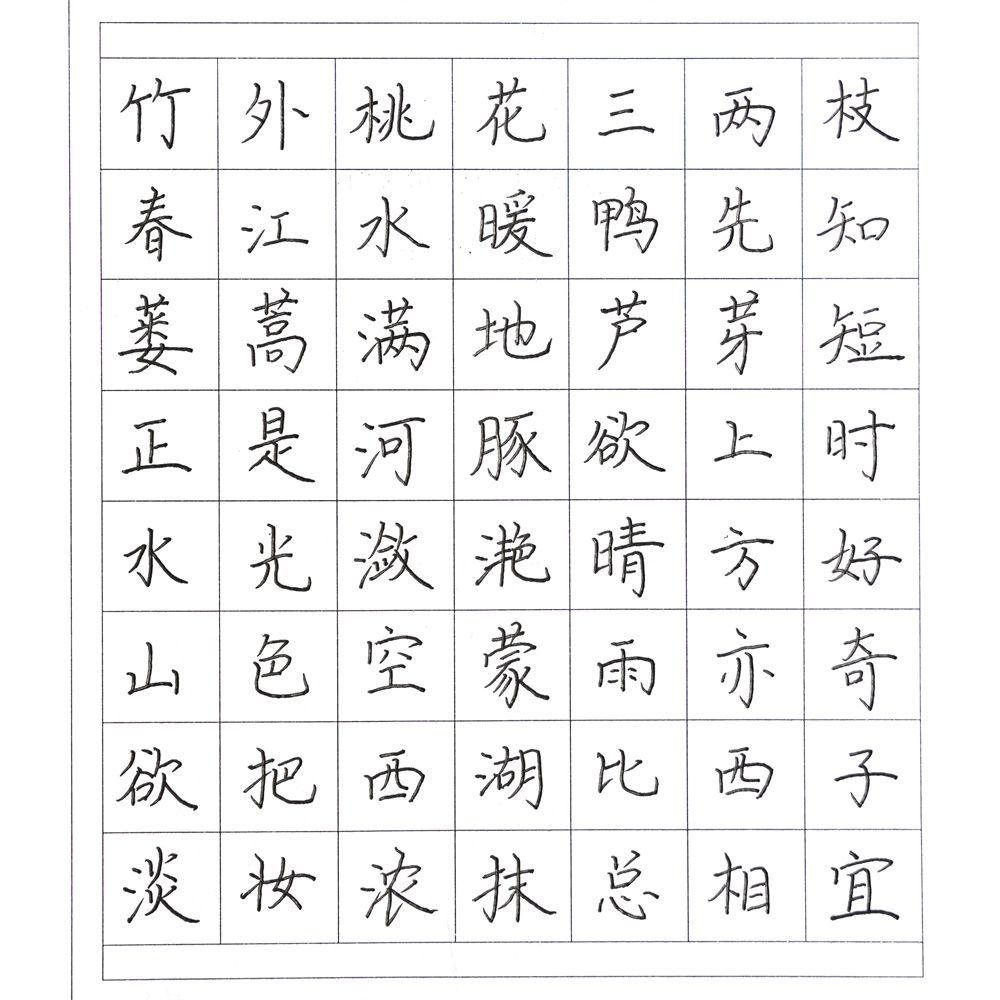 竹外桃花三两枝
春江水暖鸭先知
蒌蒿满地芦芽短
正是河豚欲上时
水光潋滟晴方好
山色空蒙雨亦奇
欲把西湖比西子
淡妆浓抹总相宜